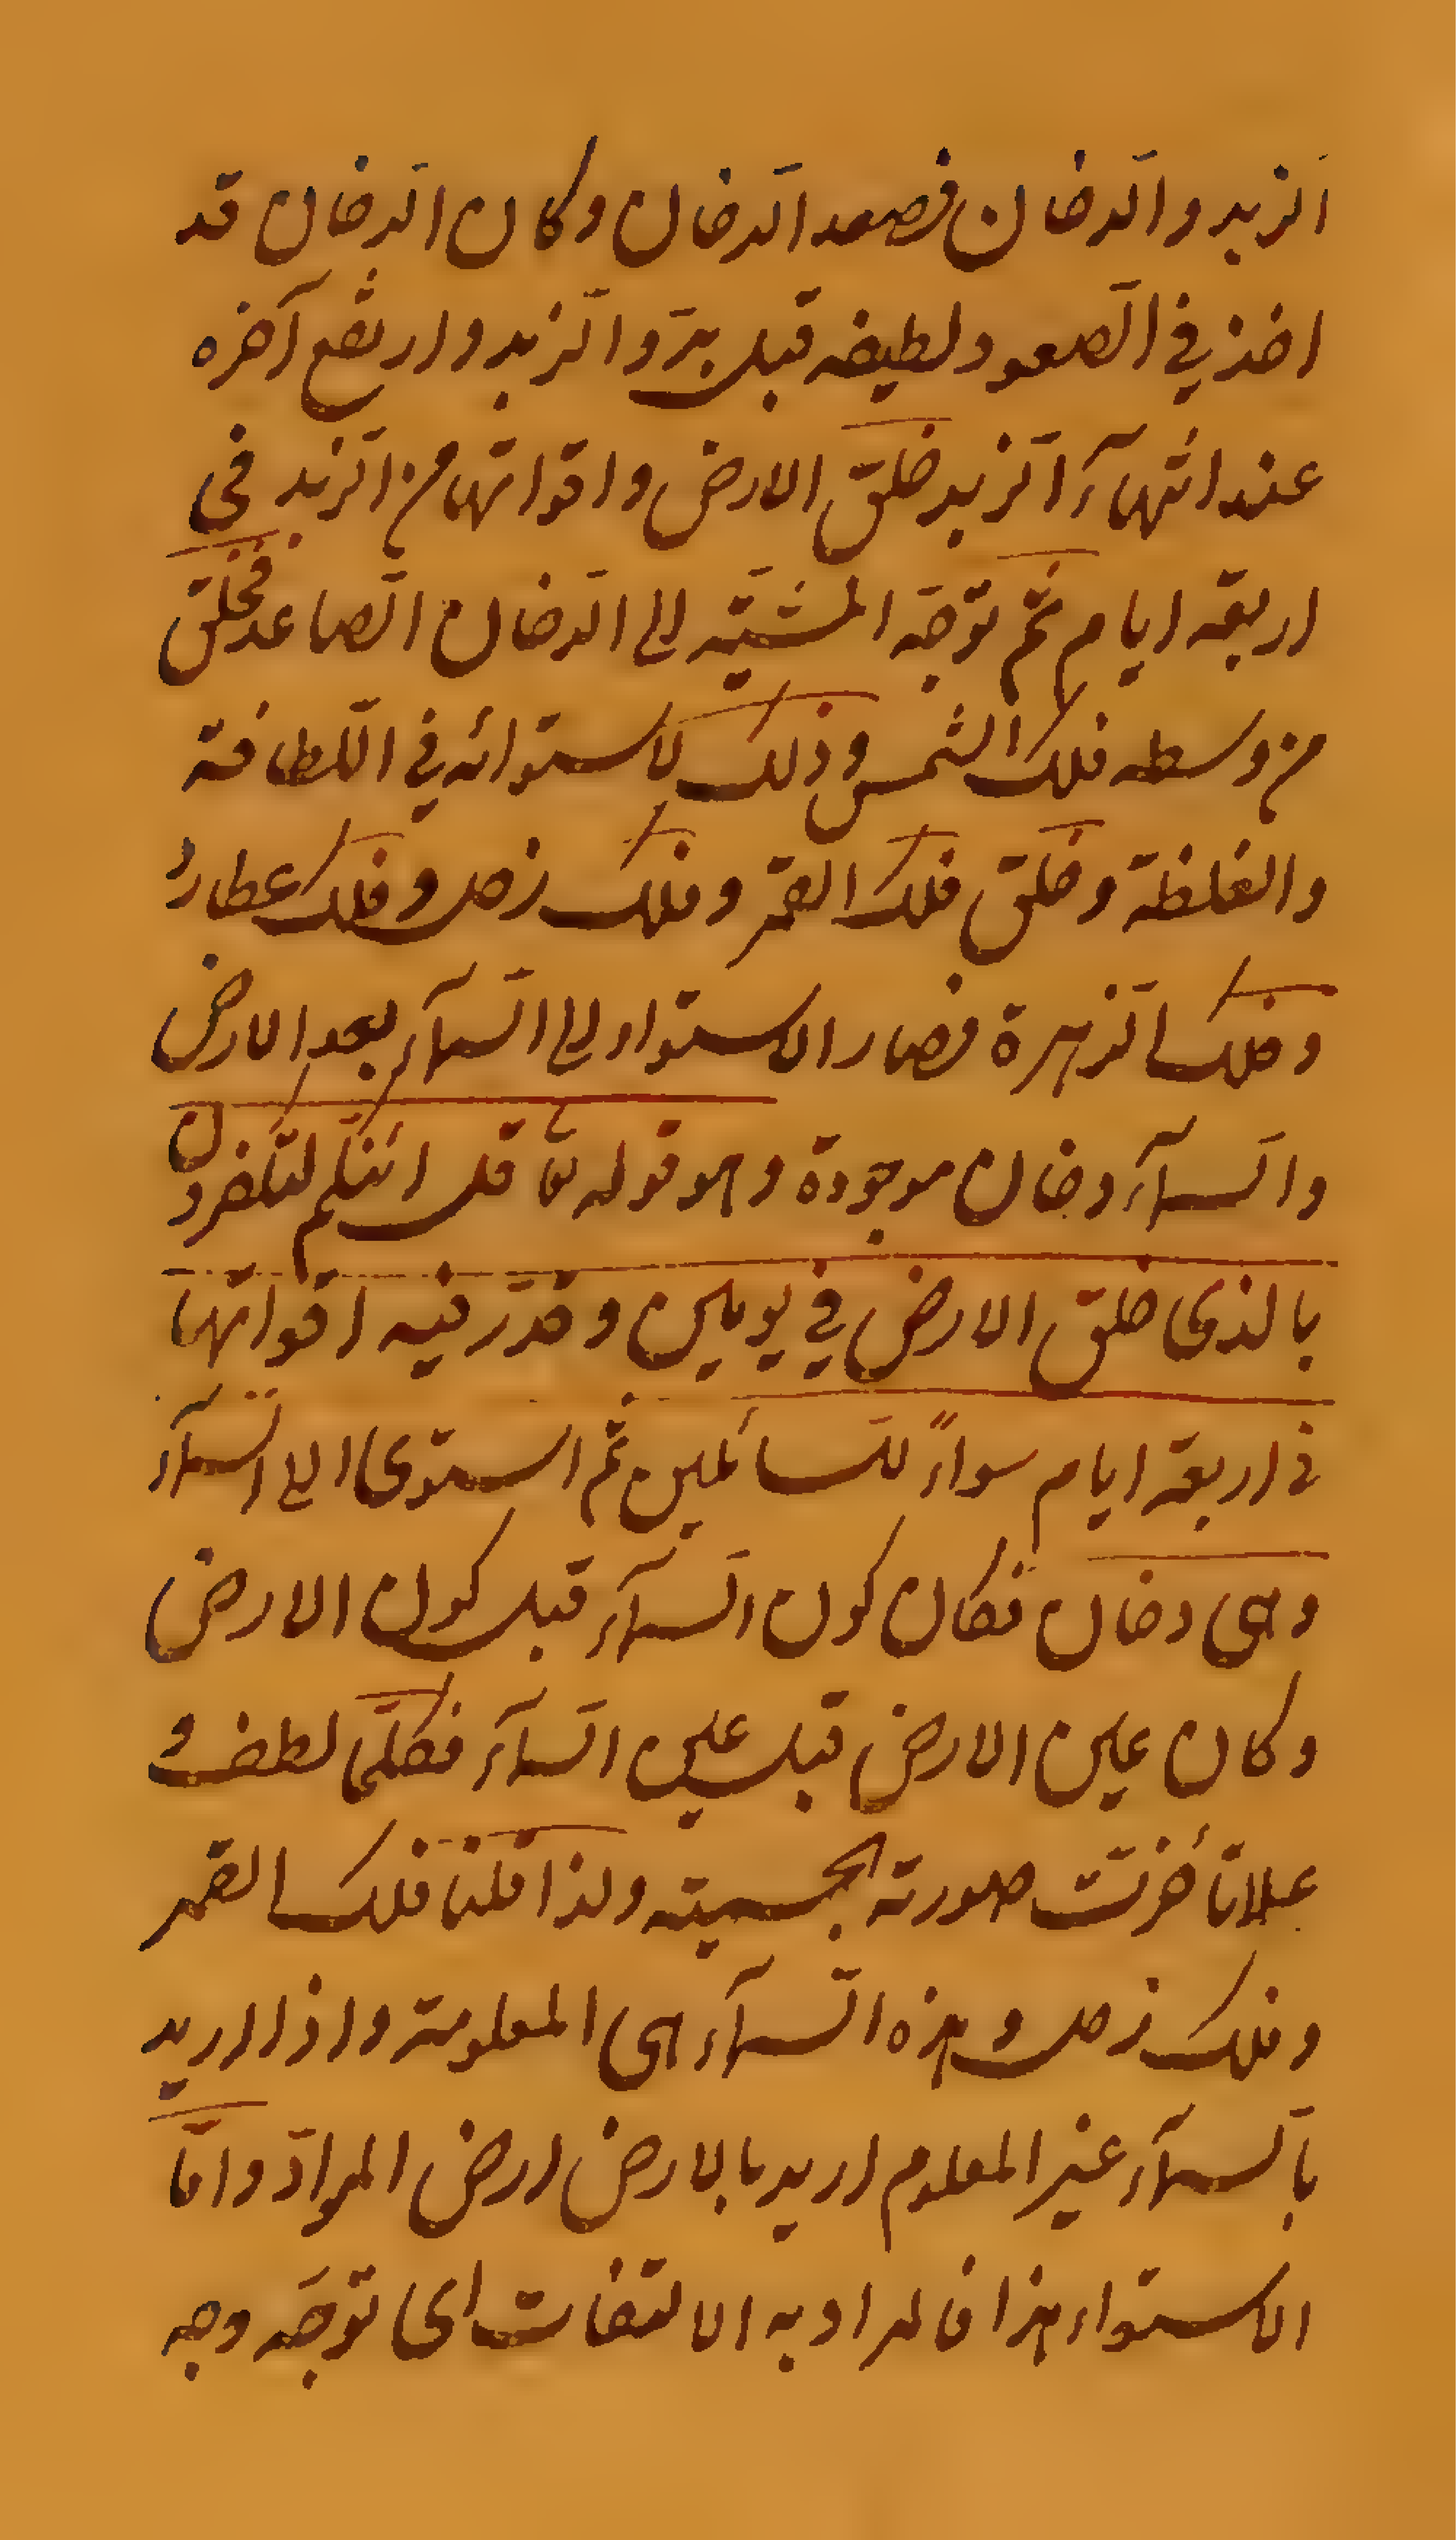 الزبد والدخان فصعد الدخان وكان الدخان قد
اخذ في الصعود لطيفه قبل بدو الزبد وارتفع آخره
عند انتهآء الزبد خلق الارض واقواتها من الزبد في
اربعة ايام ثم توجّه المشيّة الى الدخان الصاعد فخلق
من وسطه فلك الشمس وذلك لاستوائه في اللطافة
والغلظة وخلق فلك القمر وفلك زحل وفلك عطارد
وفلك الزهرة فصار الاستواء الى السمآء بعد الارض
والسمآء دخان موجودة وهو قوله تعا قل ائنكم لتكفرون
بالذى خلق الارض في يومين وقدّر فيه اقواتها
في اربعة ايام سواءً للسائلين ثم استوى الى السمآء
وهى دخان فكان كون السمآء قبل كون الارض
وكان عين الارض قبل عين السمآء فكلّما لطف و
علا تأخرت صورته الجسمية ولذا قلنا فلك القمر
وفلك زحل وهذه السمآء هى المعلومة واذا اريد
بالسمآء غير المعلوم اريد بالارض ارض الموادّ وامّا
الاستواء هذا فالمراد به الالتفات اى توجّه وجه